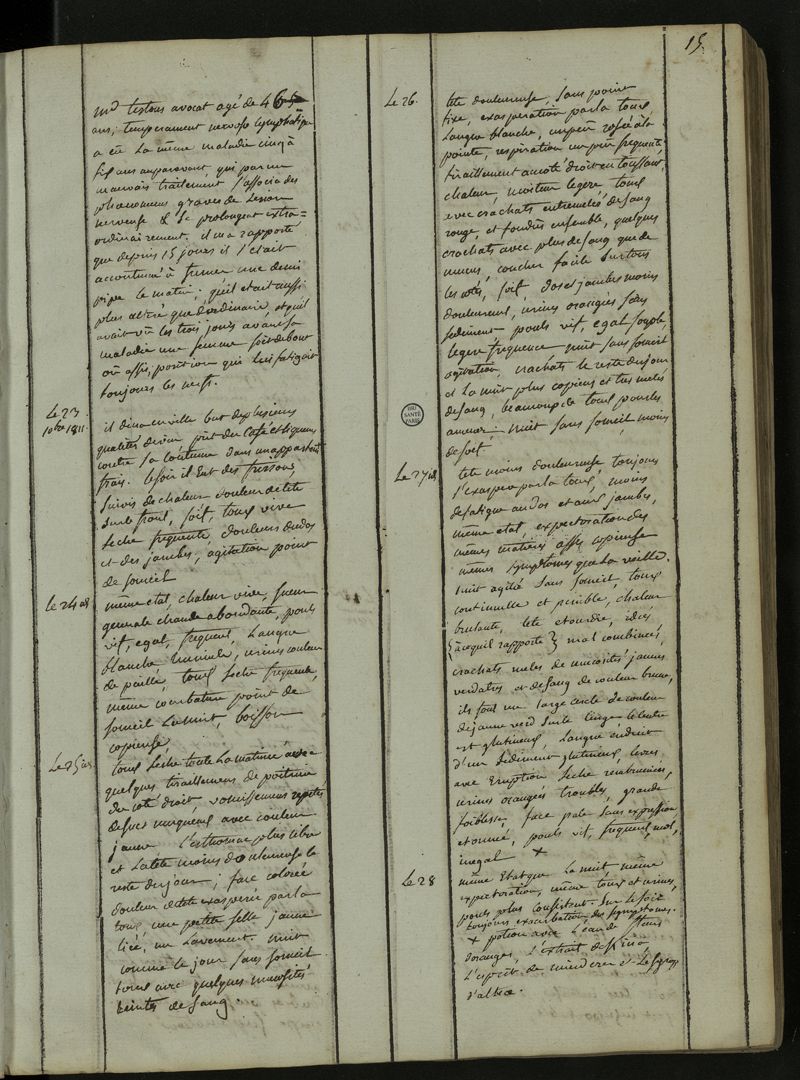 15.
Mr testous avocat agé de 46
ans; temperament nervoso lymphatique
a eu La même maladie cinq à
six ans auparavant, qui par un
mauvais traitement s'associa des
phenomenes graves de Lesion
nerveuse & se prolongeat extra=
ordinairement. il m'a rapporté
que depuis 15 jours il s'etait
accoutumé à fumer une demi
pipe le matin. qu'il etait aussi
plus alteré que d'ordinaire, et qu'il
avait vu les trois jours avant sa
maladie une femme soit debout
ou assis, position qui lui fatigait
toujours les nerfs.
Le 23
10bre 1811.
il dina en ville but de plusieurs
qualités de vin, prit du Café et liqueurs
contre sa coutume dans un appartement
frais. le soir il Eut des frissons
suivis de chaleur douleur de tete
sur le front, soif, toux vive
seche frequente, douleurs du dos
et des jambes, agitation point
de someil
Le 24 id
même etat, chaleur vive, sueur
generale chaude abondante, pouls
vif, egal, frequent, Langue
blanche humide, urines couleur
de paille, toux seche frequente,
même courbature point de
someil La nuit, boisson
copieuse,
Le 25 id
toux seche toute La matinée avec
quelques tiraillemens de poitrine
du coté droit, vomissemens repetés
de suc muqueux avec couleur
jaune L'esthomac plus libre
et La tete moins douloureuse le
reste du jour; face colorée
douleur de tete exasperée par la
toux une petite selle jaune
liée, un Lavement. nuit
comme le jour sans someil
toux avec quelques mucosités
teintes de sang.
Le 26.
tete douloureuse, sans point
fixe, exasperation par la toux
Langue blanche, un peu rosée à la
pointe, respiration un peu frequente
tiraillement au coté droit en toussant,
chaleur, moiteur legere toux
avec crachats entremelés de sang
rouge, et fondus ensemble, quelques
crachats avec plus de sang que de
mucus, coucher facile sur tous
les cotés, soif, dos et jambes moins
douloureux, urines orangées sans
sediment pouls vif, egal souple,
legere frequence nuit sans someil
agitation, crachats le reste du jour
et La nuit plus copieux et tres melés
de sang, beaucoup de toux pour les
amener. nuit sans someil moins
de soif.
BIU
SANTÉ
PARIS
Le 27 id
tete moins douloureuse toujours
s'exaspere par la toux, moins
de fatigue au dos et aux jambes,
même etat, expectoration des
mêmes matieres assés copieuse
mêmes symptomes que La veille.
nuit agitée sans someil, toux
continuelle et penible, chaleur
brulante, tete etourdie, idées
(à ce qu'il rapporte) mal combinées,
crachats melés de mucosités jaunes
verdatres et de sang de couleur brune,
ils font un large cercle de couleur
de jaune verd sur le linge le centre
est glutineux, Langue enduite
d'un sediment glutineux, levres
avec Eruption seche rembrunies,
urines orangées troubles, grande
foiblesse, face pale sans expression
etonnée, pouls vif, frequent, mol,
inegal +
Le 28
même Etat que La nuit même
expectoration, même toux et urines,
pouls plus consistant. Sur Le soir
toujours exacerbation des symptomes.
+ potion avec L'eau de fleurs
d'oranges L'extrait de kina
L'esprit de minderer et Le syrop
d'althea.